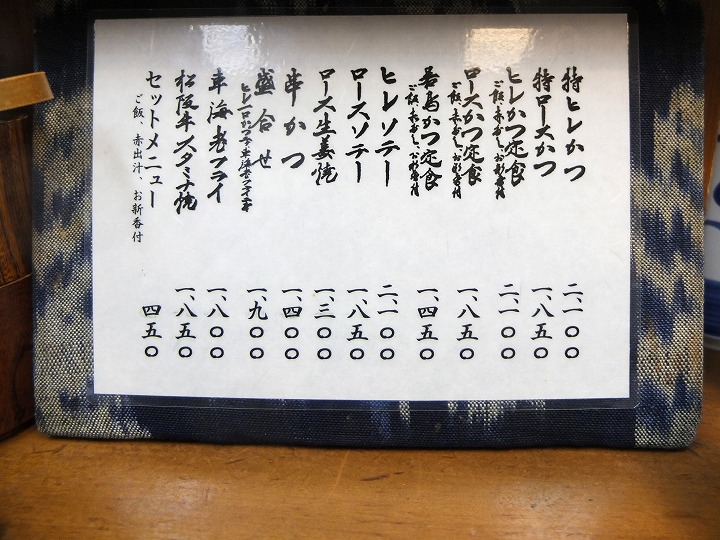 特ヒレかつ 二、一〇〇
特ロースかつ 一、八五〇
ヒレかつ定食 二、一〇〇
ご飯、赤出し、お新香付
ロースかつ定食 一、八五〇
ご飯、赤出し、お新香付
若鳥かつ定食 一、四五〇
ご飯、赤出し、お新香付
ヒレソテー 二、一〇〇
ロースソテー 一、八五〇
ロース生姜焼 一、三〇〇
串かつ 一、四〇〇
盛合せ 一、九〇〇
車海老フライ 一、八〇〇
松阪牛スタミナ焼 一、八五〇
セットメニュー 四五〇
ご飯、赤出汁、お新香付